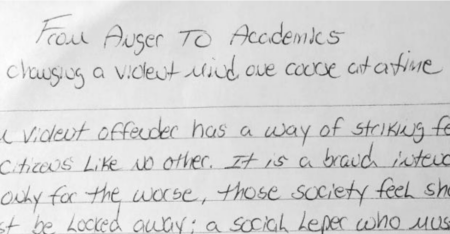 From Anger To Academics
changing a violent mind one course at a time
violent offender has a way of striking
citizens like no other. It is a brand
only for the worse, those society feel
be locked away; a social leper who